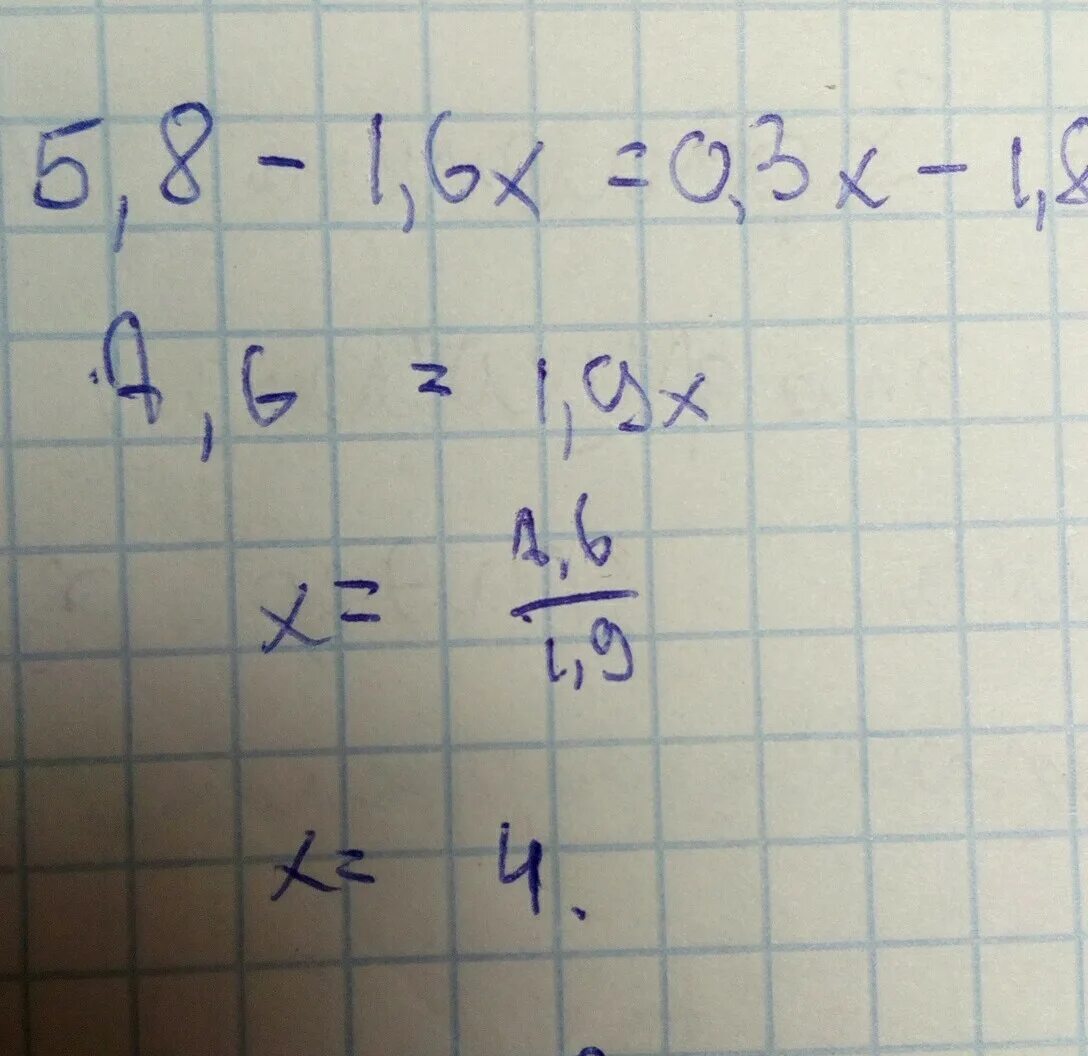 5,8 - 1,6x = 0,3x - 1,8
7,6 = 1,9x
x = 7,6/1,9
x = 4.